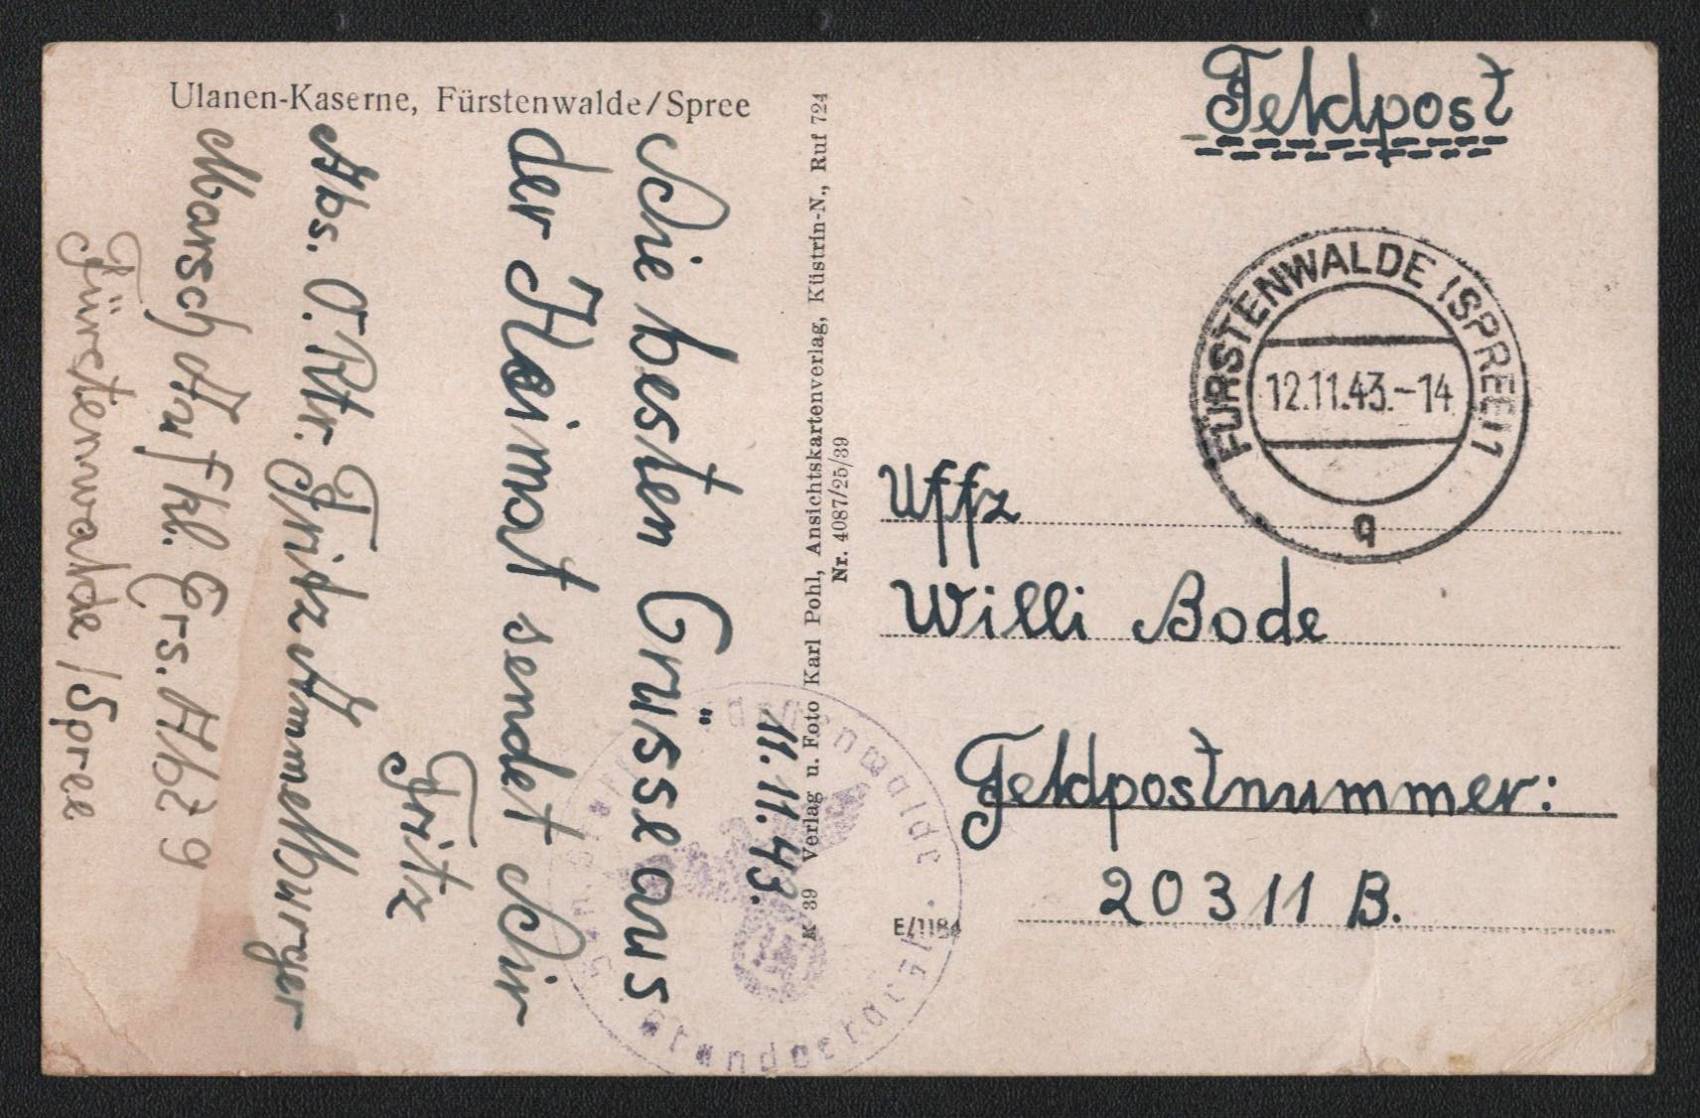 Ulanen-Kaserne, Fürstenwalde/Spree
11.11.43.
Die besten Grüsse aus
der Heimat sendet Dir
Fritz
Abs. O. Rtr. Fritz Ammelburger
Marsch Aufkl. Ers. Abt 9
Fürstenwalde/Spree
K 39 Verlag u. Foto Karl Pohl, Ansichtskartenverlag, Küstrin-N., Ruf 724
Nr. 4087/25/39
Feldpost
FÜRSTENWALDE (SPREE) 1
12.11.43.-14
q
Uffz
Willi Bode
Feldpostnummer:
20311 B.
E/1184